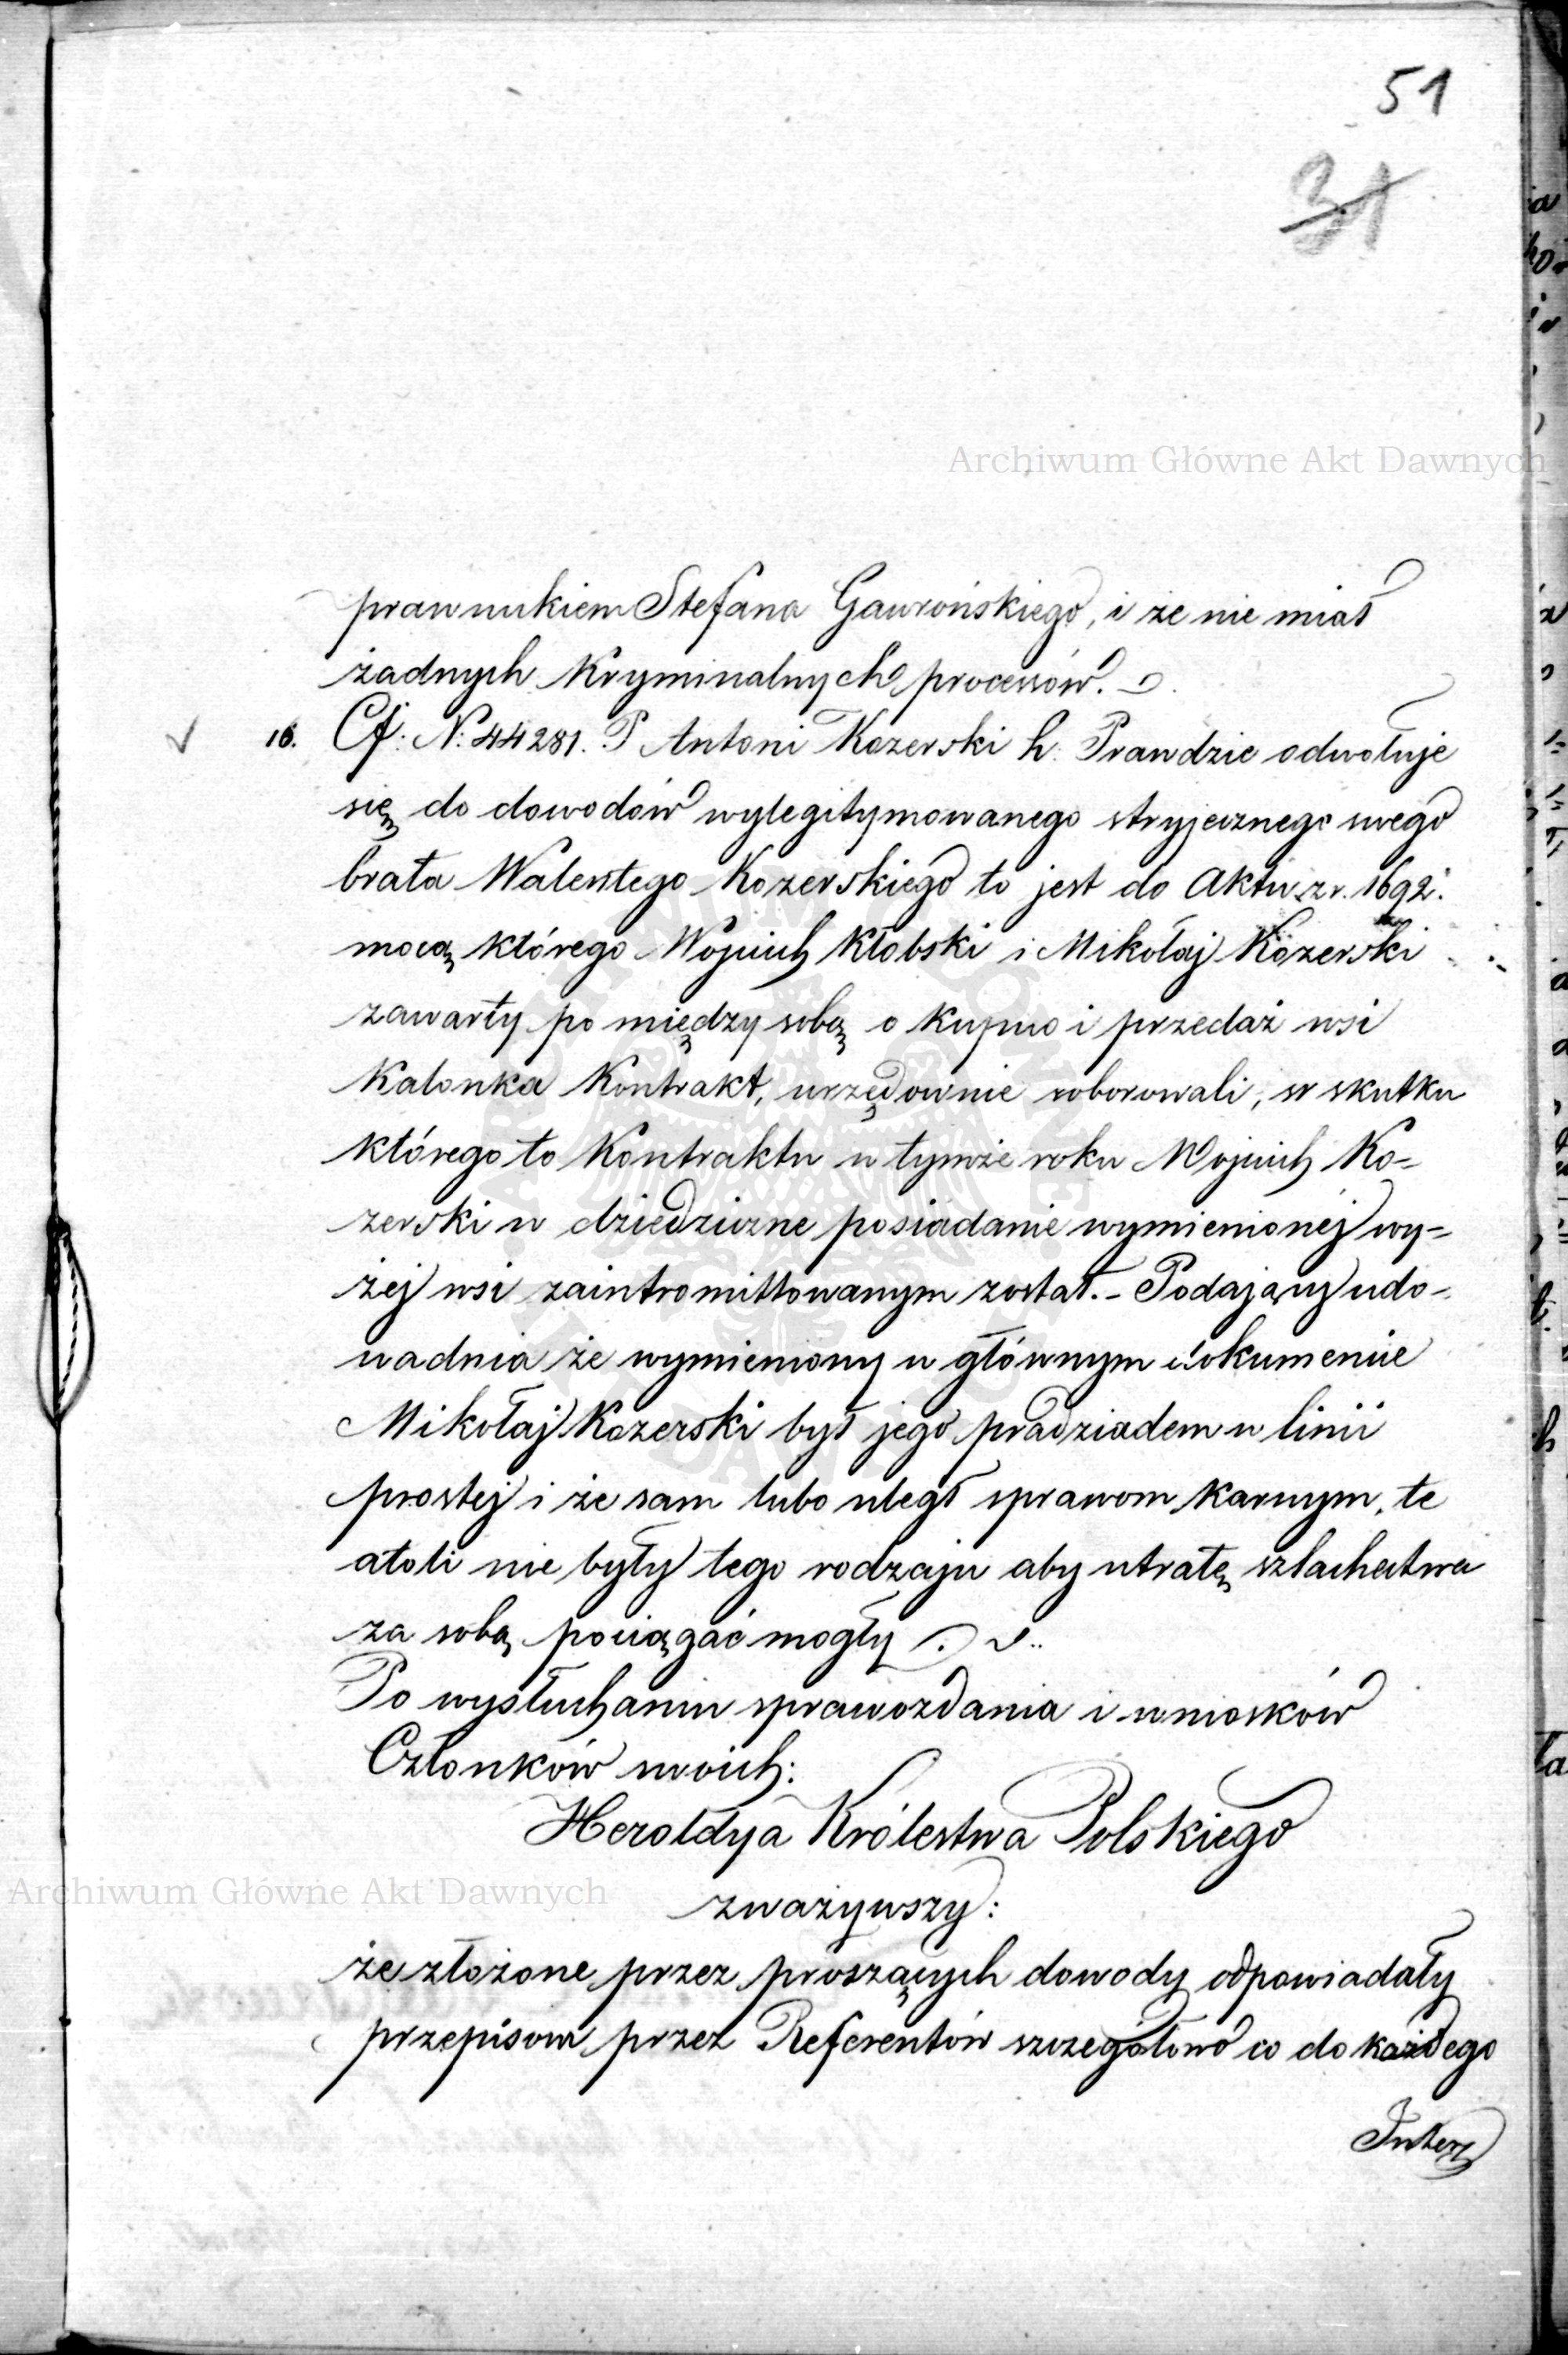 51
31
Archiwum Główne Akt Dawnych
prawnukiem Stefana Gawrońskiego, i że nie miał
żadnych kryminalnych processów.
16. Cf: N: 44281. P Antoni Kozerski h. Prawdzic odwołuje
się do dowodów wylegitymowanego stryjecznego swego
brata Walentego Kozerskiego to jest do Aktu z r. 1692.
mocą którego Wojciech Kłobski i Mikołaj Kozerski
zawarty pomiędzy sobą o kupno i przedaż wsi
Kalonka Kontrakt, urzędownie roborowali, w skutku
którego to Kontraktu w tymże roku Wojciech Ko-
zerski w dziedziczne posiadanie wymienionéj wy-
żej wsi zaintromittowanym został. - Podający udo-
wadnia że wymieniony w głównym dokumencie
Mikołaj Kozerski był jego pradziadem w linii
prostej i że sam lubo uległ sprawom karnym, te
atoli nie były tego rodzaju aby utratę szlachectwa
za sobą pociągać mogły.
Po wysłuchaniu sprawozdania i wniosków
Członków swoich:
Heroldya Królestwa Polskiego
Archiwum Główne Akt Dawnych
zważywszy:
że złożone przez proszących dowody odpowiadały
przepisom przez Referentów szczegółowo co do każdego